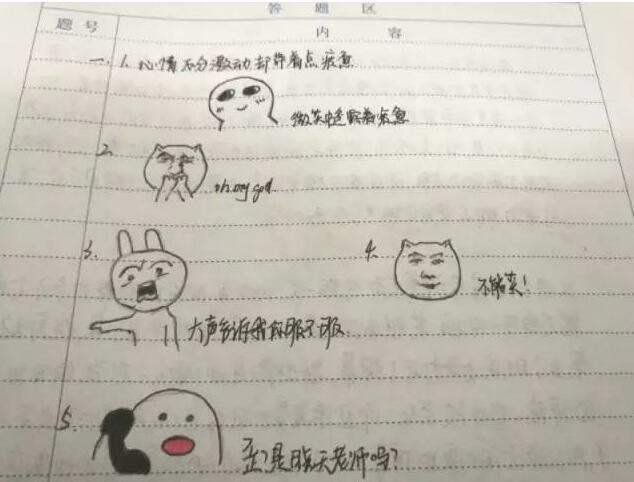 答 题 区
题 号 内 容
一. 1. 心情十分激动却带着点疲惫
微笑中透露着疲惫
2.
oh my god
3. 4.
不能笑!
大声告诉我你服不服
5.
歪?是陈天老师吗?